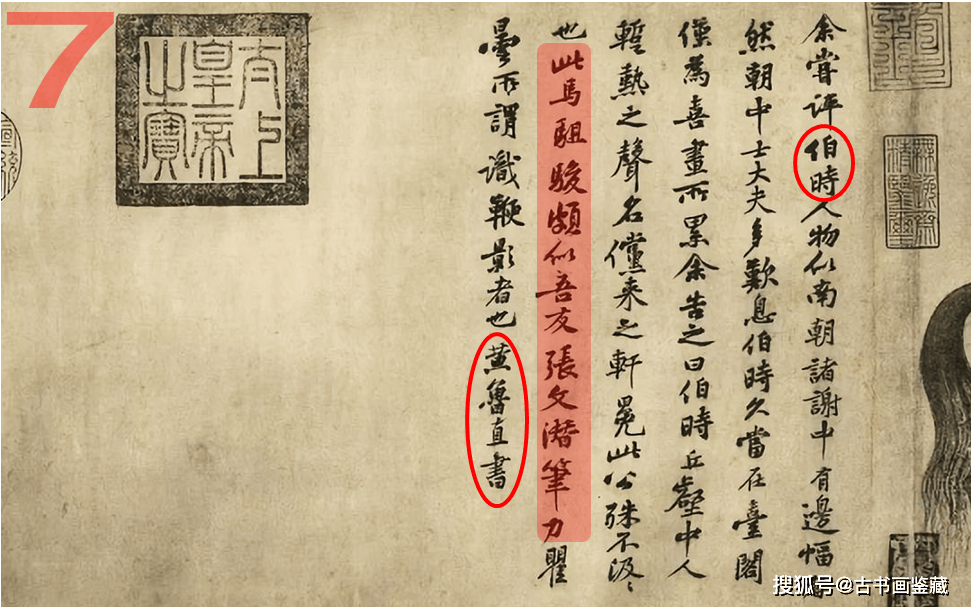 7
余嘗評伯時人物似南朝諸謝中有邊幅
然朝中士大夫多歎息伯時久當在臺閣
僅為喜畫所累余告之曰伯時丘壑中人
蹔熱之聲名儻来之軒冕此公殊不汲々
也此馬駔駿頗似吾友張文潜筆力瞿
曇所謂識鞭影者也黃魯直書
太上皇帝之寶
搜狐号@古书画鉴藏